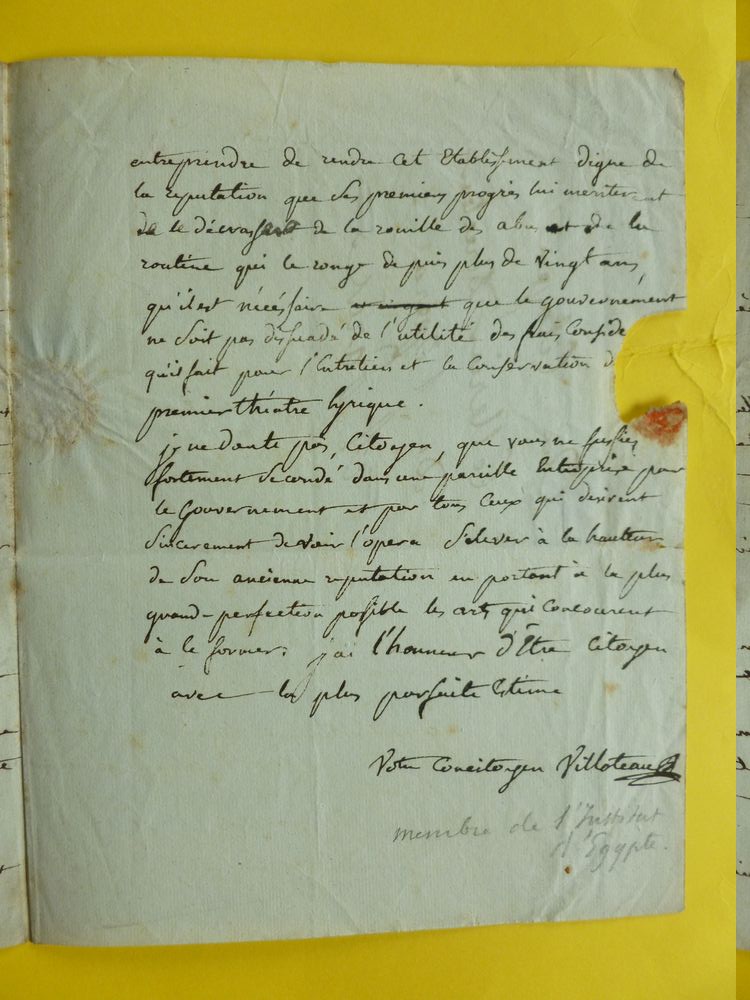 entreprendre de rendre cet Etablissement digne de
la reputation que ses premiers progrès lui meriterent
de le décrassant de la rouille des abus et de la
routine qui le ronge depuis plus de vingt ans,
qu'il est nécéssaire que le gouvernement
ne soit pas dissuadé de l'utilité des frais conside
qu'il fait pour l'Entretien et la Conservation d
premier théatre lyrique.
je ne doute pas, Citoyen, que vous ne fussiés
fortement secondé dans une pareille Entreprise par
le Gouvernement et par tous ceux qui désirent
Sincerement de voir l'opera s'elever à la hauteur
de Son ancienne reputation en portant à la plus
grande perfection possible les arts qui concourent
à le former. j'ai l'honneur d'Être Citoyen
avec la plus parfaite Estime
Votre Concitoyen Villoteau
membre de l'Institut
d'Egypte.